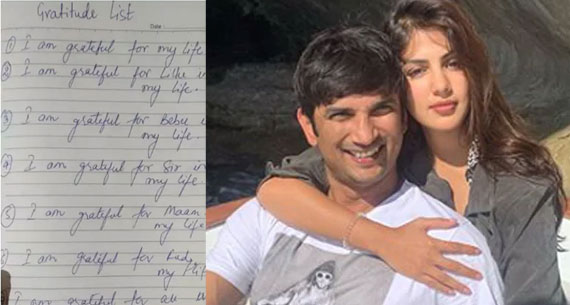 Gratitude List
Date
① I am grateful for my life
② I am grateful for Lillu in
my life.
③ I am grateful for Bebu in
my life.
④ I am grateful for Sir in
my life
⑤ I am grateful for Maam
my life
I am grateful for Fudge
my life
I am grateful for all